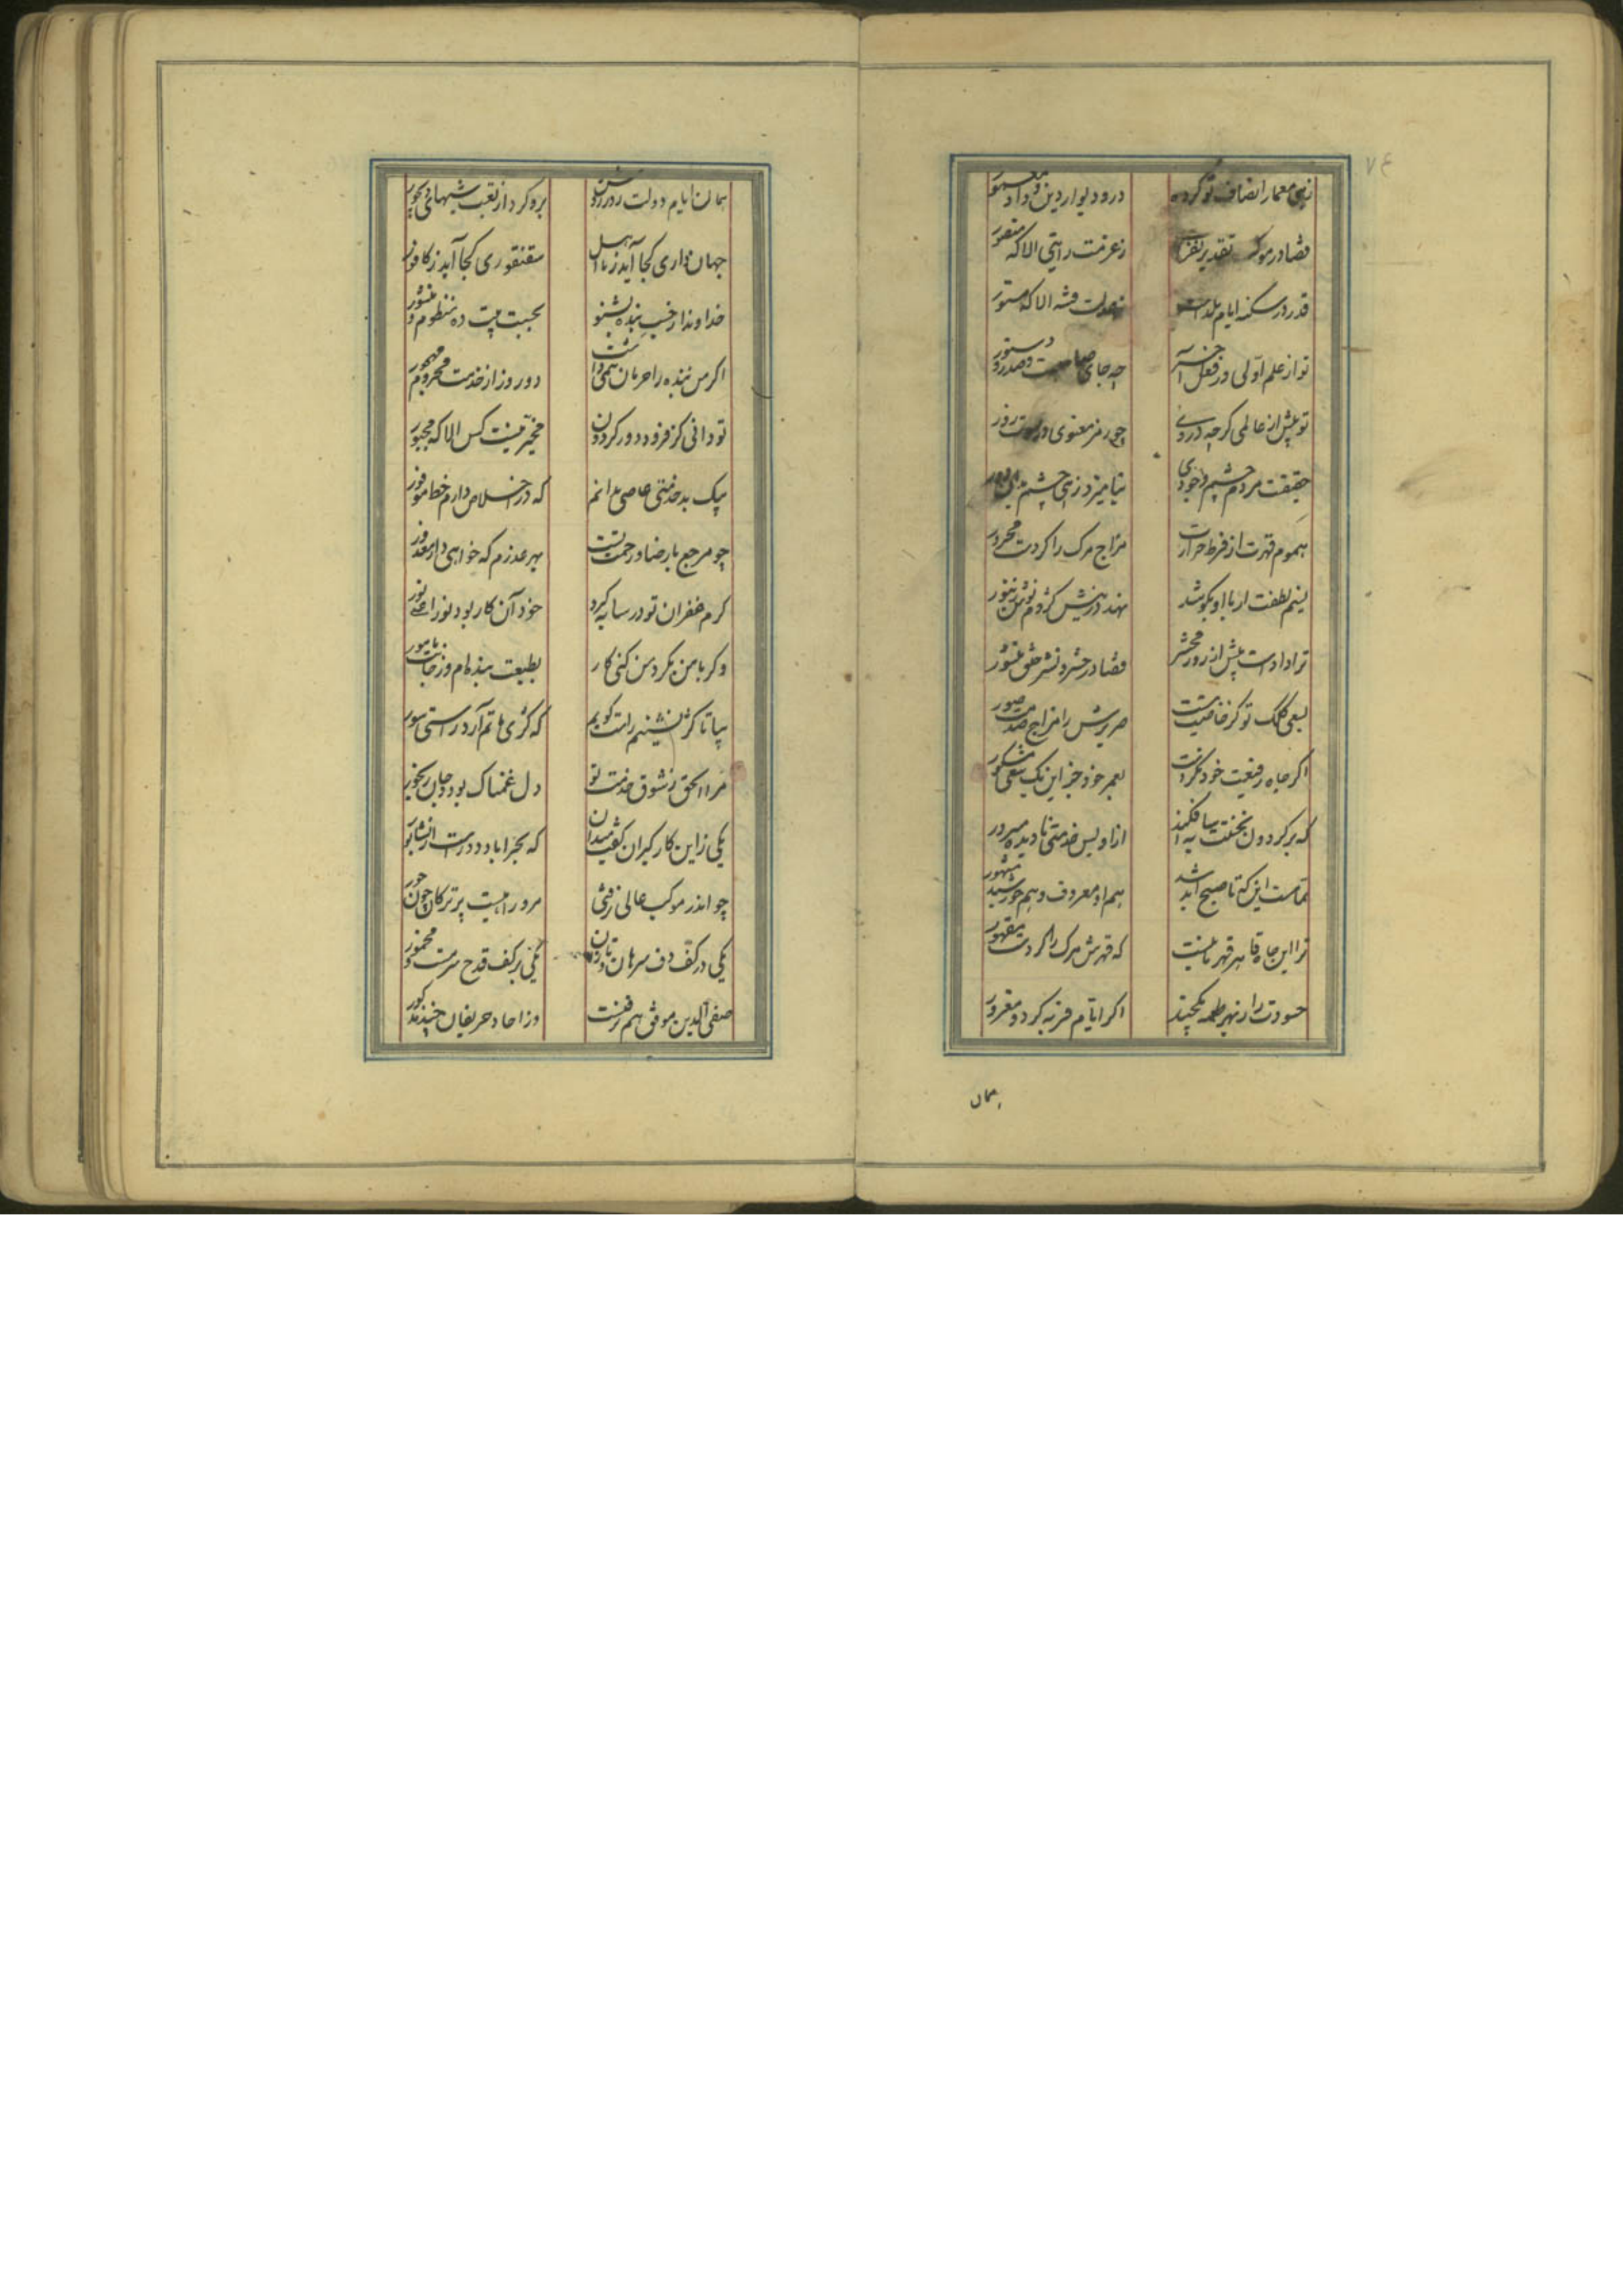 ۷۴
زهی معمار انصاف تو کرده
در و دیوار دین و داد معمور
قضا در موکب تقدیر نفراشت
ز عزمت رایتی الا که منصور
قدر در سکنه ایام نگذاشت
فتنه الا که مستور
تو از علم اولی وز فعل آخر
چه جای صاحبست و صدر و دستور
تو پیش از عالمی گرچه دروی
چو رمز معنوی در صورت
حقیقت مردم چشم وجودی
بنامیزد زهی چشم بدان دور
سموم قهرت از فرط حرارت
مزاج مرگ را کردست محرور
نسیم لطفت ار با او بکوشد
نهد در نیش کژدم نوش زنبور
ترا دادست پیش از روز محشر
قضا در حشر و نشر خلق منشور
بسعی کلک تو کز خاصیت هست
صریرش را مزاج صدمت صور
اگر جاه رفیعت خود نکردست
بعمر خود جز این یک سعی مشکور
که بر گردون بخفتت سایه افکند
ازو بس خدمتی نادیده میرور
تمامست این که تا صبح ابد شد
هم او معروف و هم خورشید مشهور
ترا این جاه قاهر قهرمانیست
که قهرش مرگ را کردست مقهور
حسودت را ز بهر طعمه یکچند
اگر ایام فربه کرد و مغرور
همان
همان ایام دولت روز روشن
برو کرد از تعب شبهای دیجور
جهان داری کجا آید ز نااهل
سقنقوری کجا آید ز کافور
خداوندا ز حسب بنده بشنو
بحسبت بیت ده منظوم و منثور
اگر من بنده را حرمان همی داشت
دو روز از خدمت محروم و مهجور
تو دانی کز فرود دور گردون
مخیر نیست کس الا که مجبور
بیک بد خدمتی عاصی مدانم
که در اخلاص دارم خط موفور
چو مرجع با رضا و رحمت تست
بهر عذرم که خواهی دار معذور
کرم غفران تو در سایه گیرد
خود آن کار بود نورا علی نور
وگر با من بکرد من کنی کار
بطبعت بنده ام وز جانت مأمور
بیا تا کژ نشینم راست گویم
که کژی ماتم آرد راستی سور
مرا الحق ز شوق خدمت تو
دل غمناک بود و جان رنجور
یکی زاین کارگیران گفت میدان
که بحراباد دورست از نشابور
چو اندر موکب عالی نرفتی
مرو راهیست پر ترکان چون حور
یکی در کف دف سرهان و تازان
یکی بر کف قدح سرمست و مخمور
صفی الدین موفق هم نرفتست
وز احاد حریفان چند مذکور